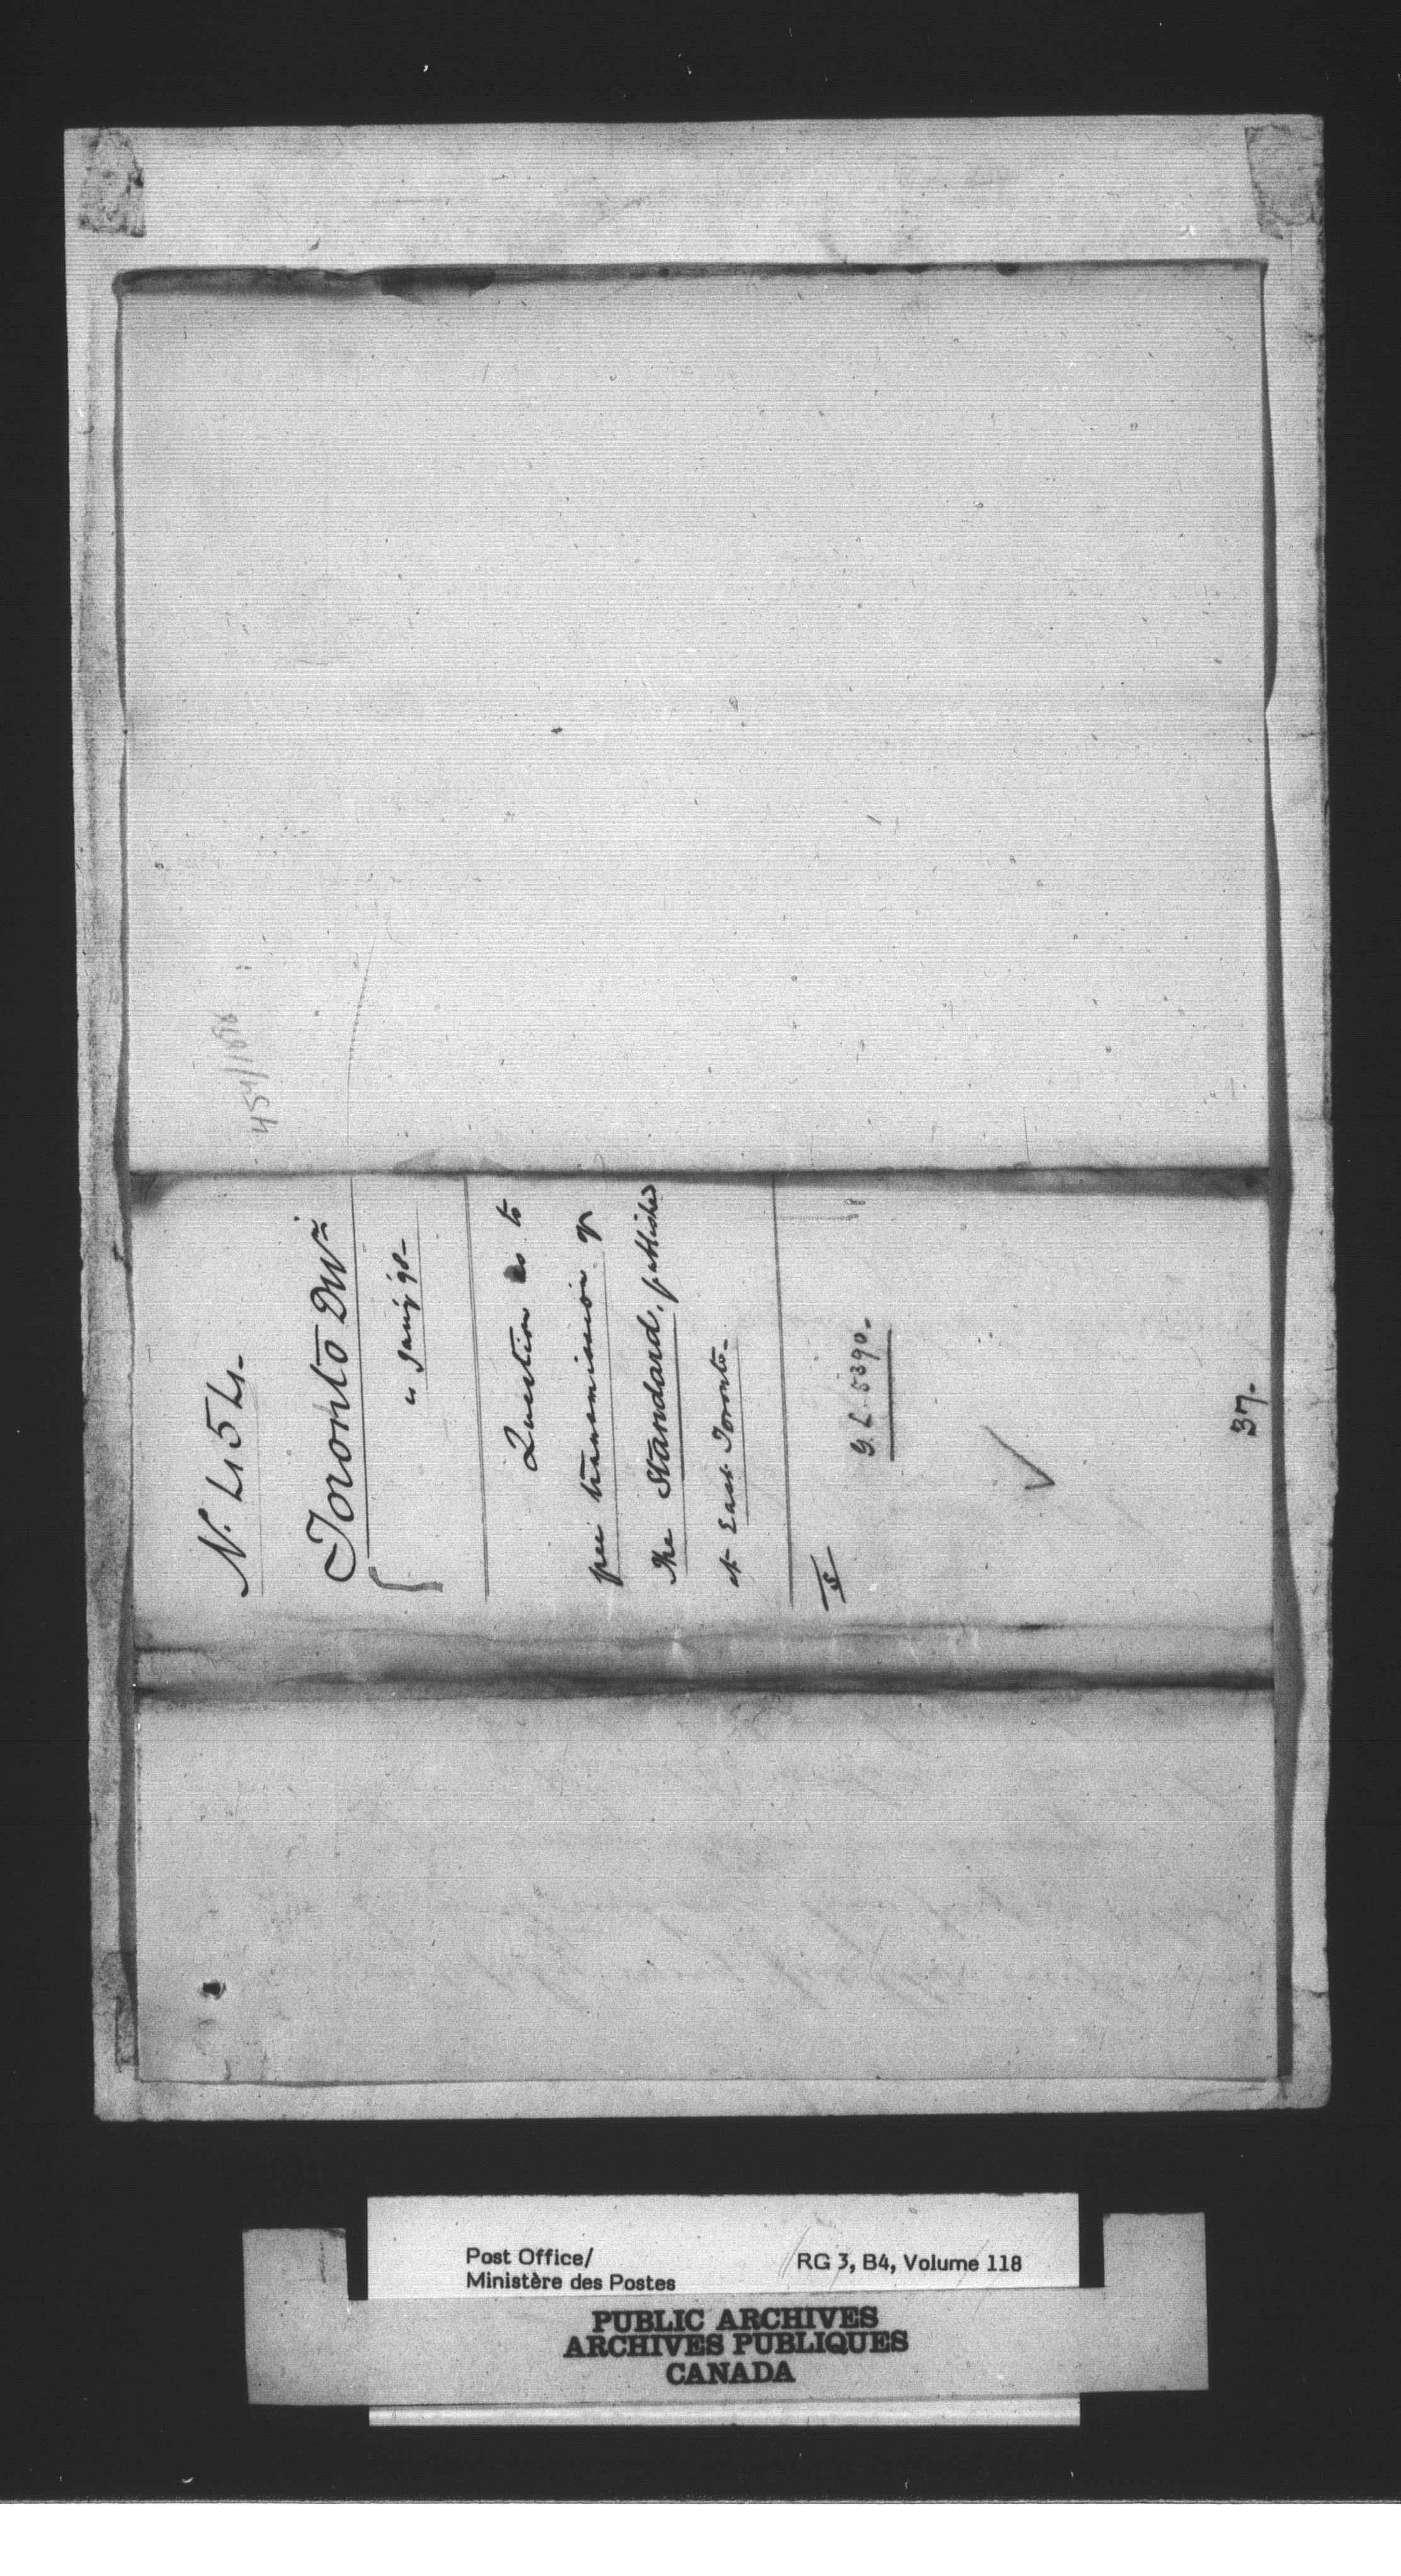 454/1898
N. 454.
Toronto Divn
Jany 98-
Question as to
free transmission of
the Standard, published
at East Toronto-
G.L. 5390.
37-
Post Office/
Ministère des Postes
RG 3, B4, Volume 118
PUBLIC ARCHIVES
ARCHIVES PUBLIQUES
CANADA